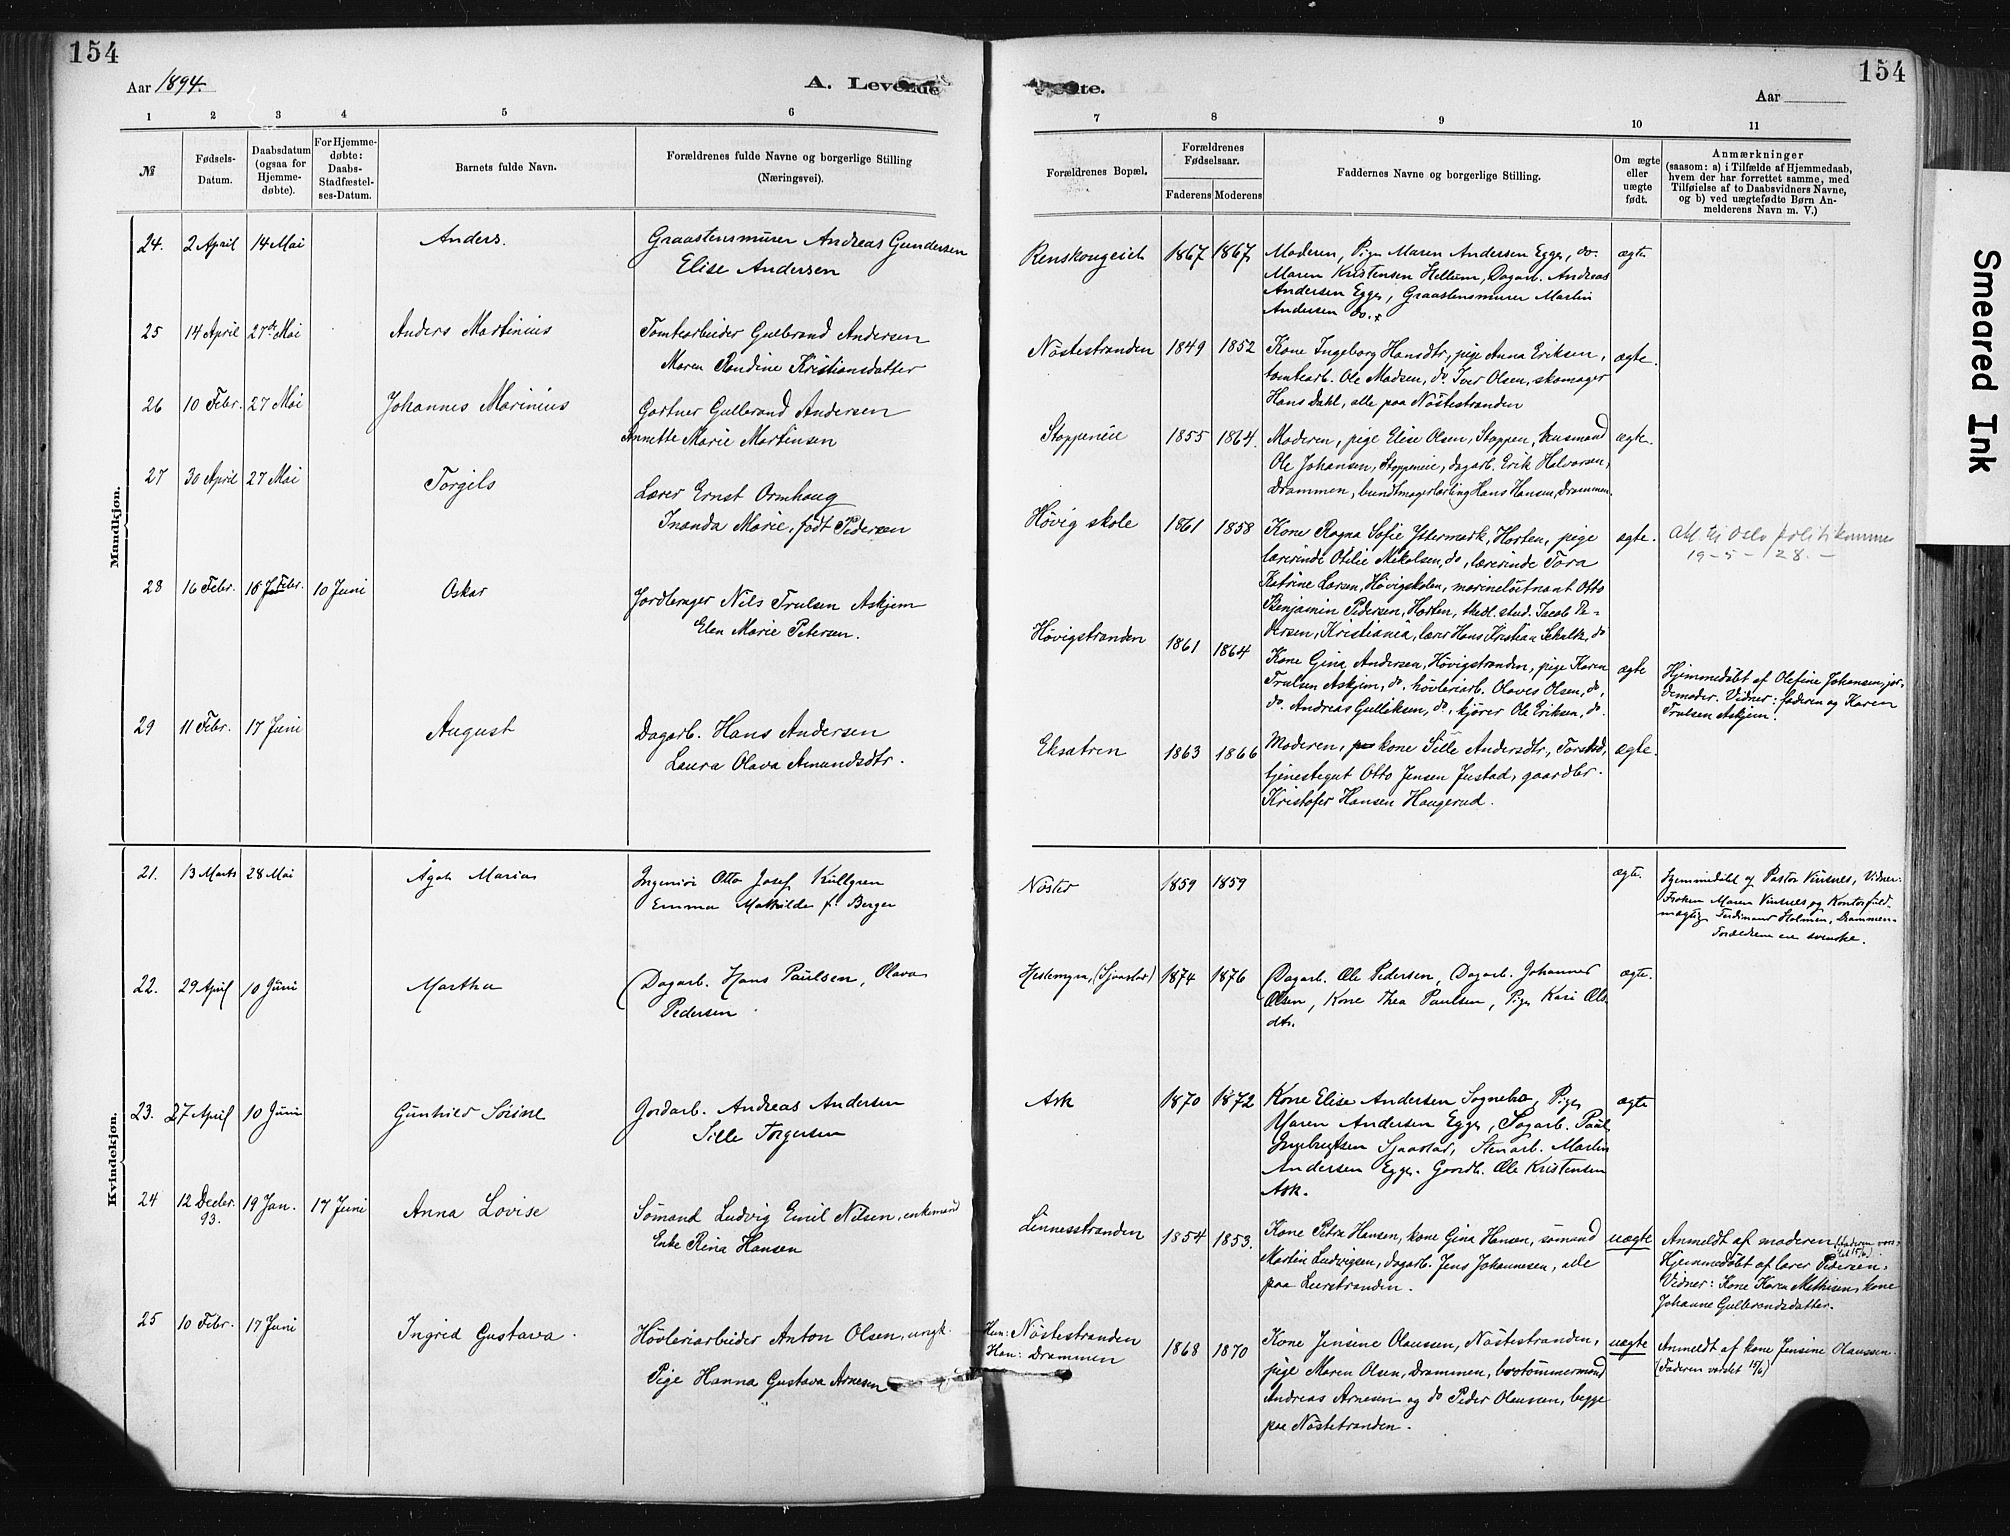 154
Aar 1894.
A. Levende
1 2 3 4 5 6
№
Fødsels-
Datum.
Daabsdatum
(ogsaa for
Hjemme-
døbte).
For Hjemme-
døbte:
Daabs-
Stadfæstel-
ses-Datum.
Barnets fulde Navn.
Forældrenes fulde Navne og borgerlige Stilling
(Næringsvei).
Mandkjøn.
24. 2 April 14 Mai Anders. Graastensmurer Andreas Gundersen
Elise Andersen
25 14 April 27de Mai Anders Martinius Tomtearbeider Gulbrand Andersen
Maren Randine Kristiansdatter
26 10 Febr. 27 Mai Johannes Marinius Gartner Gulbrand Andersen
Annette Marie Martinsen
27 30 April 27 Mai Torgils Lærer Ernst Ormhaug
Inanda Marie, født Pedersen
28 16 Febr. 18 Febr. 10 Juni Oskar Jordbruger Nils Trulsen Askjem
Elen Marie Petersen.
29 11 Febr. 17 Juni August Dagarb. Hans Andersen
Laura Olava Amundsdtr.
Kvindekjøn.
21. 13 Marts 28 Mai Ågot Maria Ingeniør Otto Josef Kullgren
Emma Mathilde f. Berger
22. 29 April 10 Juni Martha Dagarb. Hans Paulsen, Olava
Pedersen
23. 27 April 10 Juni Gunhild Sørine Jordarb. Andreas Andersen
Sille Torgersen
24 12 Decbr. 93. 19 Jan. 17 Juni Anna Lovise Sømand Ludvig Emil Nilsen, enkemand
Enke Rina Hansen
25 10 Febr. 17 Juni Ingrid Gustava. Høvleriarbeider Anton Olsen, ungk.
Pige Hanna Gustava Arnesen
154
Aar
7 8 9 10 11
Forældrenes Bopæl.
Forældrenes
Fødselsaar.
Faderens Moderens
Faddernes Navne og borgerlige Stilling.
Om ægte
eller
uægte
født.
Anmærkninger
(saasom: a) i Tilfælde af Hjemmedaab,
hvem der har forrettet samme, med
Tilføielse af to Daabsvidners Navne,
og b) ved uægtefødte Børn An-
melderens Navn m. V.)
Renskougeiet 1867 1867 Moderen, Pige Maren Andersen Egge, do. ægte
Maren Kristensen Hellum, Dagarb. Andreas
Andersen Egge, Graastensmurer Martin
Andersen do.
Nøstestranden 1849 1852 Kone Ingeborg Hansdtr, pige Anna Eriksen, ægte.
tomtearb. Ole Madsen, do. Iver Olsen, skomager
Hans Dahl, alle paa Nøstestranden
Stoppeneie 1855 1864. Moderen, pige Elise Olsen, Stoppen, husmand ægte.
Ole Johansen, Stoppeneie, dagarb. Erik Halvorsen,
Drammen, bundtmagerlærling Hans Hansen, Drammen.
Høvig skole 1861 1858 Kone Ragna Sofie Yttermark, Horten, pige ægte.
lærerinde Otilie Mikalsen, do, lærerinde Tora
Katrine Larsen, Høvigskolen, marineløitnant Otto
Benjamin Pedersen, Horten, theol. stud. Jacob Pe-
dersen, Kristiania, lærer Hans Kristian Schultz, do
Att. til Oslo politikammer
19-5-28.-
Høvigstranden 1861 1864 Kone Gina Andersen, Høvigstranden, pige Karen ægte
Trulsen Askjem, do, høvleriarb. Olaves Olsen, do,
do. Andreas Gulliksen, do, kjører Ole Eriksen, do.
Hjemmedøbt af Olefine Johansen, jor-
demoder. Vidner: faderen og Karen
Trulsen Askjem.
Eksætren 1863 1866 Moderen, kone Sille Andersdtr, Torstad, ægte.
tjenestegut Otto Jensen Justad, gaardbr.
Kristofer Hansen Haugerud.
Nøste 1859 1859 ægte. Hjemmedøbt af Pastor Vinsnes, Vidner:
Frøken Maren Vinsnes og Kontorfuld-
mægtig Ferdinand Holmen, Drammen.
Forældrene ere svenske.
Hestemyra, (Sjaastad) 1874 1876 Dagarb. Ole Pedersen, Dagarb. Johannes ægte.
Olsen, Kone Thea Paulsen, Pige Kari Ols
dtr.
Ask 1870 1872 Kone Elise Andersen Sognebo, Pige ægte
Maren Andersen Egge, Dagarb. Paul
Ingebregtsen Sjaastad, Stenarb. Martin
Andersen Egge. Gaardb. Ole Kristensen
Ask.
Linnesstranden 1854 1853. Kone Petra Hansen, kone Gina Hansen, sømand uægte
Martin Ludvigsen, dagarb. Jens Johannesen, alle
paa Lierstranden.
Anmeldt af moderen (faderen vars-
let 15/6).
Hjemmedøbt af lærer Pedersen.
Vidner: Kone Karen Mathisen, kone
Johanne Gulbrandsdatter.
Hun: Nøstestranden
Han: Drammen
1868 1870 Kone Jensine Olaussen, Nøstestranden, uægte
pige Maren Olsen, Drammen, bostømmermand
Andreas Arnesen og do Peder Olaussen, begge
paa Nøstestranden.
Anmeldt af kone Jensine Olaussen.
(Faderen varslet 15/6)
Smeared Ink